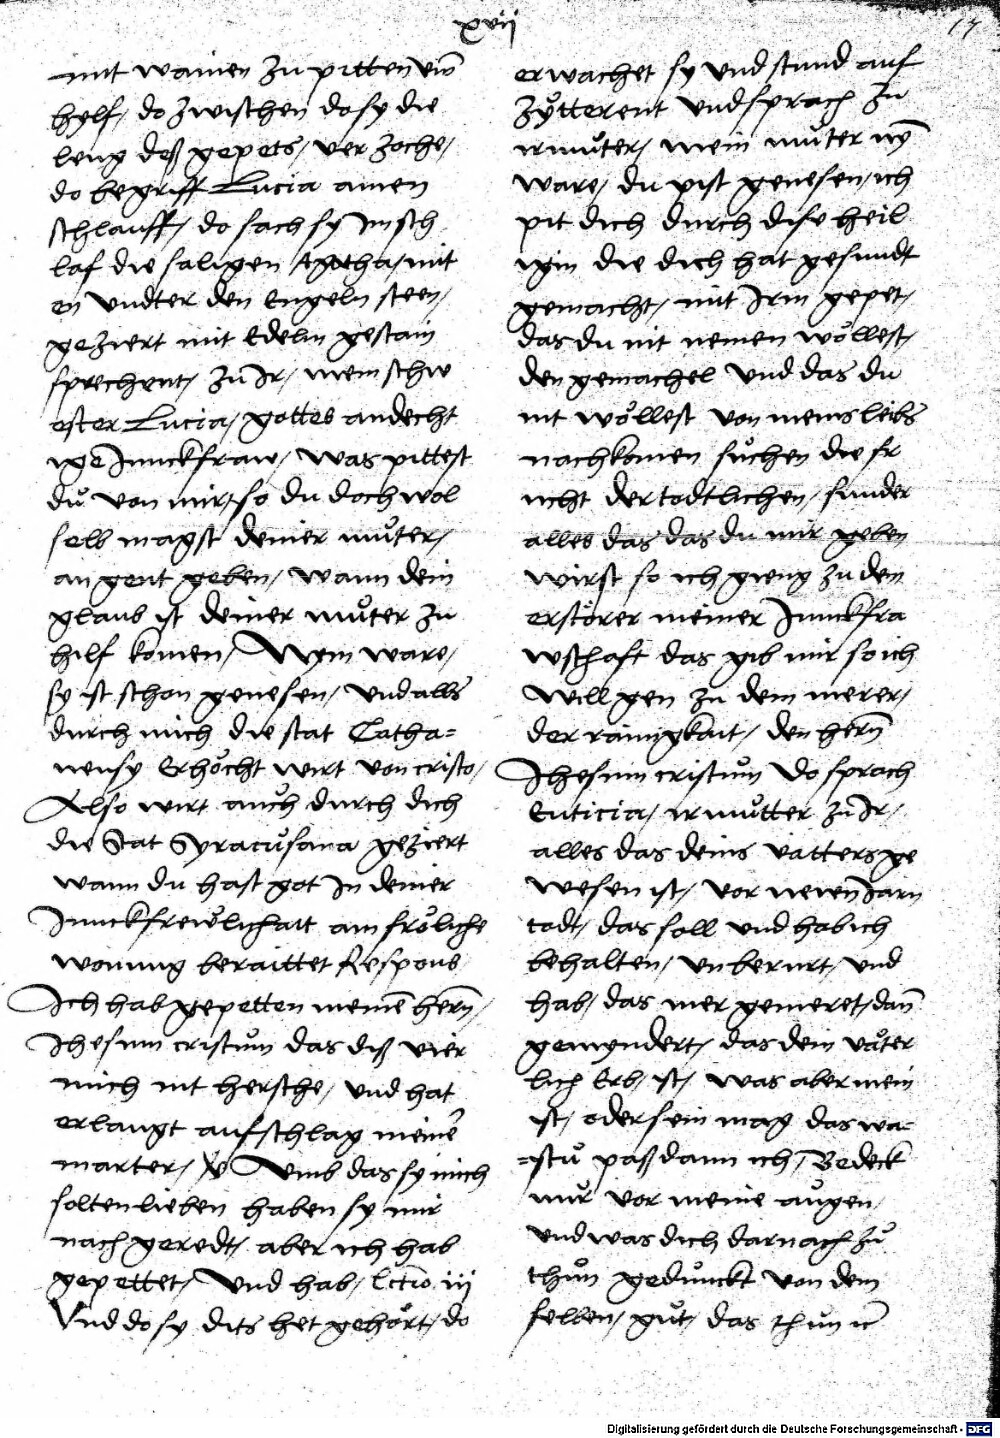 xvij
17
mit wainen zu pitten um̄
hylf/ do zwischen do sy die
leng deß gepets/ ver zoche/
do begriff Lucia ainen
schlauff/ do sach sy Im sch
laf die saligen Agatha/ mit
en vndter den Engeln steen/
geziert mit Edelm gestain
sprechent/ zu Ir/ mein schw
ester Lucia/ gottes andecht
ige Junckfraw/ was pittest
du von mir/ so du doch wol
selb magst deiner muter/
an gent geben/ wann dein
glaub ist deiner muter zu
hilf komen/ Nym ware/
sy ist schon genesen/ vnd alls
durch mich die stat Catha=
nensy Erhocht wirt von cristo/
Also wirt auch durch dich
die Stat Syracusana geziert
wann du hast got In deiner
Junckfrewlichait ain froliche
wonung beraittet Respons
Ich hab gepetten meinē hern̄/
Ihesum cristum das diß vier
mich nit hersche/ vnd hat
erlangt aufschlag meiner
marter/ V̸ Vmb das sy mich
solten lieben haben sy mir
nach geredt/ aber ich hab
gepettet/ Vnd hab/ lctio iij
Vnd do sy dits het gehort/ do
erwachet sy vnd stund auf
zytterent vnd sprach zu
ir muter/ mein muter nym̄
ware/ du pist genesen/ ich
pit dich durch dise heil
igin die dich hat gesundt
gemacht/ mit Irm gepet/
das du nit nemen wöllest/
den gemachel vnd das du
nit wöllest von meins leibs
nachkomen suchen die fr
ucht der todtlichen/ sunder
alles das das du mir geben
wirst so ich gieng zu dem
erstörer meiner Junckfra
wschaft das gib mir so ich
will gen zu dem merer/
der rainigkait/ den hern̄
Ihesum cristum Do sprach
Euticia/ ir mutter zu Ir/
alles das deins vatters ge
wesen ist/ vor newn Jarn
todt/ das soll vnd hab ich
behalten/ vnberurt/ vnd
hab/ das mer gemeret/ dan̄
gemyndert/ das dein väter
lich Erb/ ist/ was aber mein
ist/ oder sein mag das wa=
=stu paß dann ich/ Bedeck
mir vor meine augen
vnd was dich darnach zu
thun gedunckt von dem
selben/ gut/ das thun ic
Digitalisierung gefördert durch die Deutsche Forschungsgemeinschaft - DFG